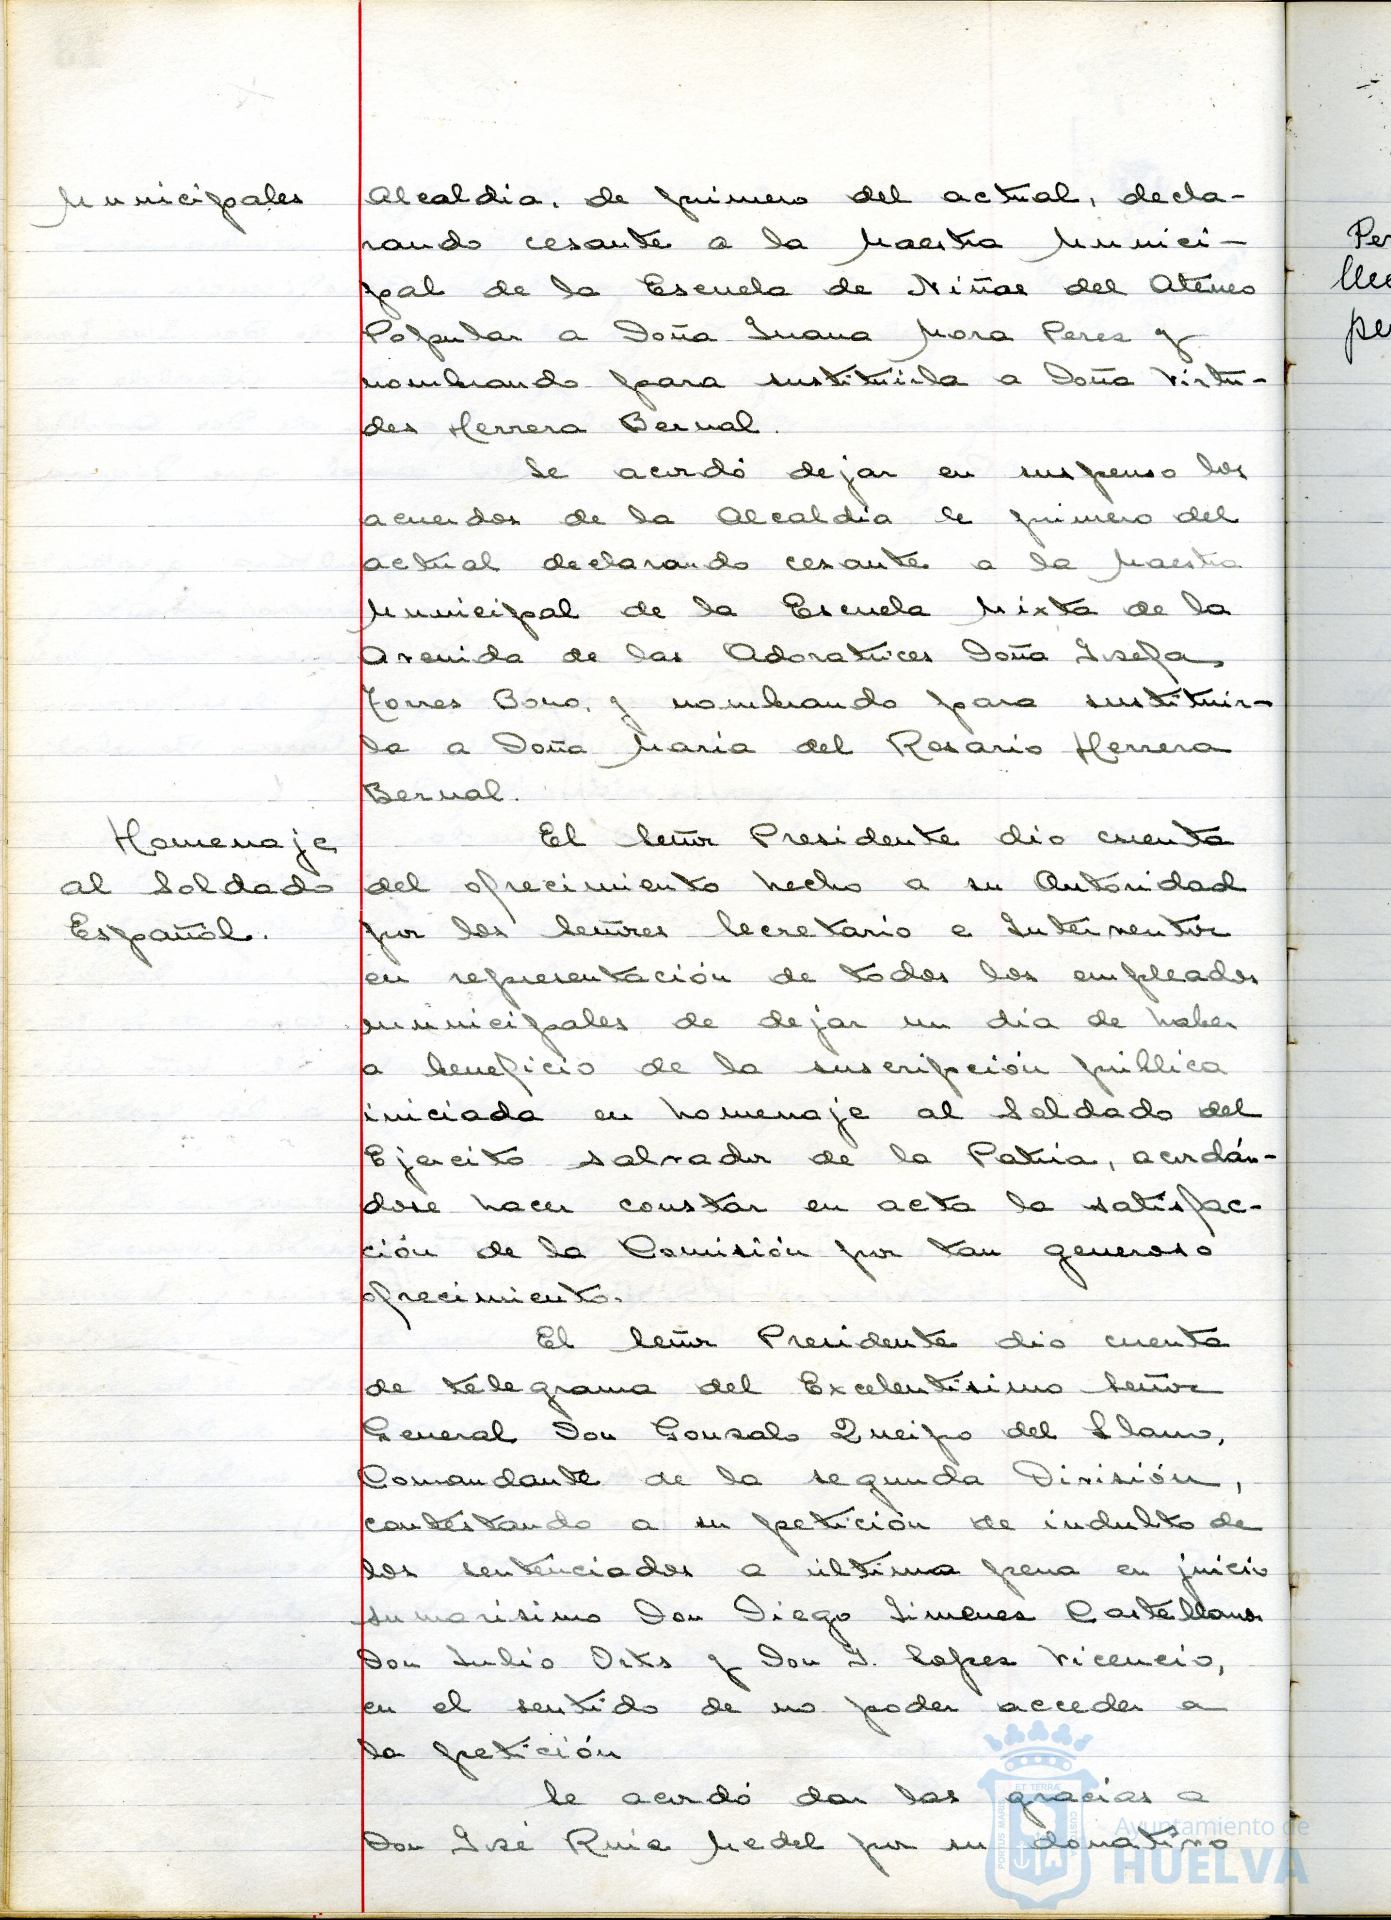 Municipales
Alcaldia, de primero del actual, decla-
rando cesante a la Maestra Munici-
pal de la Escuela de Niñas del Ateneo
Popular a Doña Juana Mora Perez y
nombrando para sustituirla a Doña Virtu-
des Herrera Bernal.
Se acordó dejar en suspenso los
acuerdos de la Alcaldia de primero del
actual declarando cesante a la Maestra
Municipal de la Escuela Mixta de la
Avenida de las Adoratrices Doña Josefa
Torres Bono, y nombrando para sustituir-
la a Doña Maria del Rosario Herrera
Bernal.
Homenaje
al Soldado
Español.
El Señor Presidente dio cuenta
del ofrecimiento hecho a su Autoridad
por los Señores Secretario e Interventor
en representación de todos los empleados
municipales de dejar un dia de haber
a beneficio de la suscripción pública
iniciada en homenaje al Soldado del
Ejercito salvador de la Patria, acordán-
dose hacer constar en acta la satisfac-
ción de la Comisión por tan generoso
ofrecimiento.
El Señor Presidente dio cuenta
de telegrama del Excelentisimo Señor
General Don Gonzalo Queipo del Llano,
Comandante de la segunda División,
contestando a su petición de indulto de
los sentenciados a última pena en juicio
sumarisimo Don Diego Jimenez Castellano
Don Julio Orts y Don J. Lopez Vicencio,
en el sentido de no poder acceder a
la petición
Se acordó dar las gracias a
Don José Ruiz Medel por su donativo
Per
lle
pe
PORTUS MARIS ET TERRÆ CUSTOS
Ayuntamiento de
HUELVA